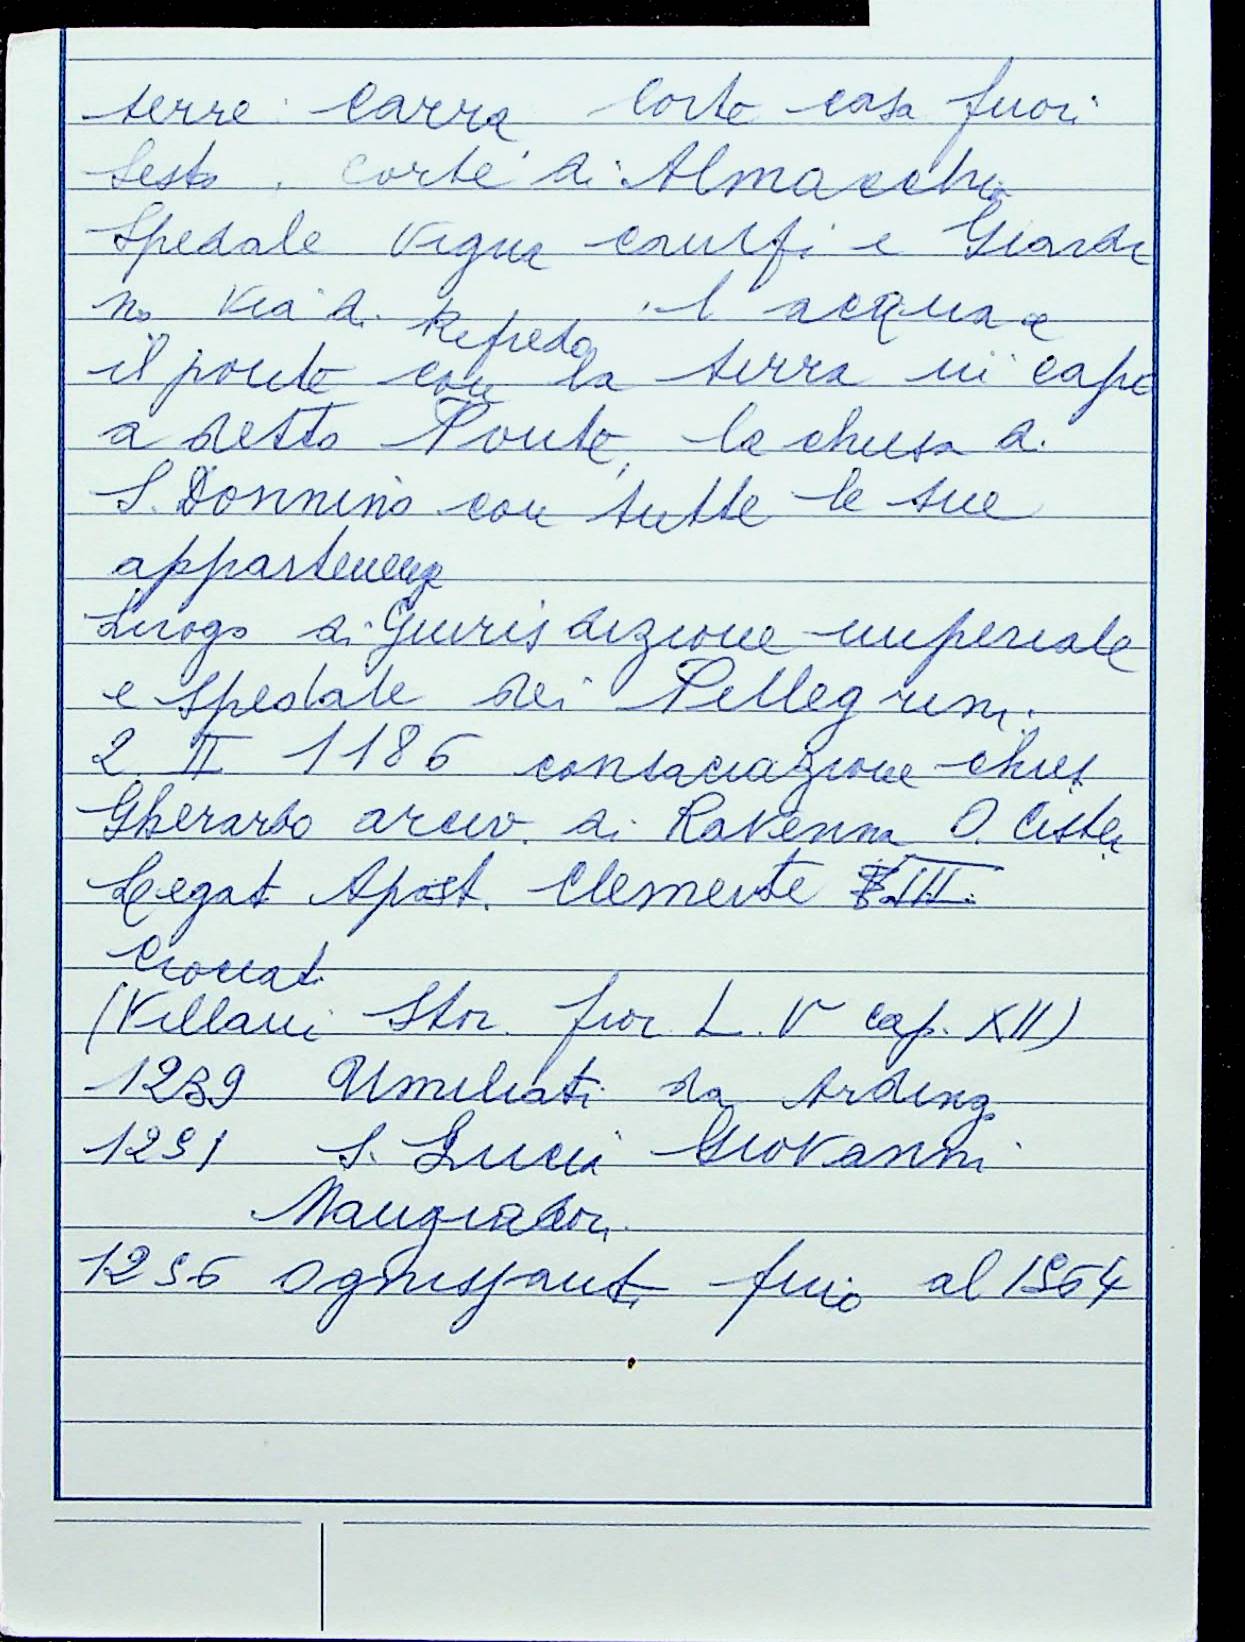 terre Carra Corte casa fuori
Sesto, corte di Almacchio
Spedale Vigna campi e Giardi
no Via di Refredo l acqua e
il ponte con la terra in capo
a detto Ponte, la chiesa di
S. Donnino con tutte le sue
appartenenze
Luogo di Giurisdizione imperiale
e Spedale dei Pellegrini.
2 II 1186 consacrazione chies
Gherardo arciv. di Ravenna O. Cister
Legat Apost. Clemente III.
Crociat.
(Villani Stor. fior L. V cap. XII)
1239 Umiliati da Arding
1251 S. Lucia Giovanni
Mangiadori
1256 Ognissanti fino al 1564